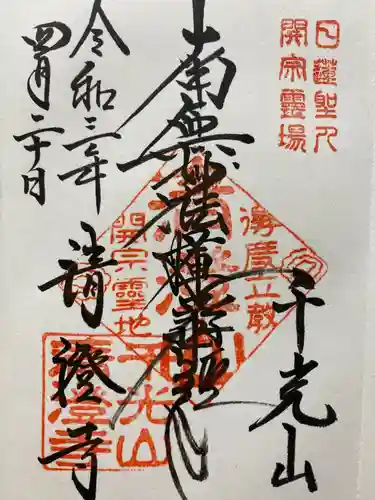 日蓮聖人
開宗靈場
千光山
南無妙法蓮華経
清澄寺
令和三年
四月二十日
開宗靈地
千光山
清澄寺